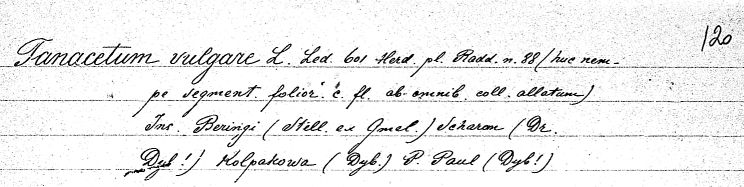 120
Tanacetum vulgare L. Led. 601 Herd. pl. Radd. n. 88 (huc nem-
pe segment. folior. c. fl. ab omnib. coll. allatum)
Ins. Beringi (Stell. ex Gmel.) Scharom (Dr.
Dyb!) Kolpakowa (Dyb.) P. Paul (Dyb!)